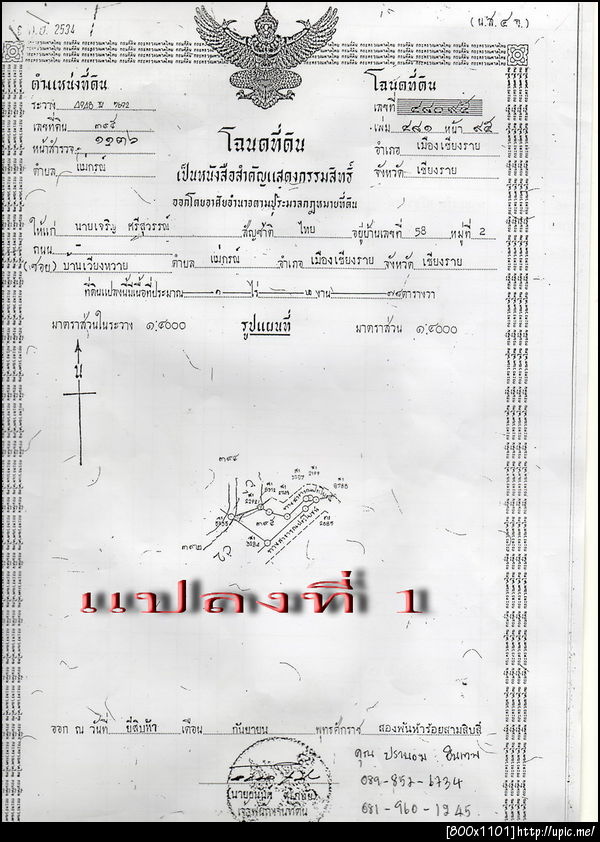 2534
(น.ส. ๔ จ.)
ตำแหน่งที่ดิน
โฉนดที่ดิน
ระวาง 4948 II 7692
เลขที่ ๔๘๐๙๕
เลขที่ดิน ๓๙๕
เล่ม ๔๘๑ หน้า ๙๕
หน้าสำรวจ ๑๑๓๖
อำเภอ เมืองเชียงราย
ตำบล แม่กรณ์
จังหวัด เชียงราย
โฉนดที่ดิน
เป็นหนังสือสำคัญแสดงกรรมสิทธิ์
ออกโดยอาศัยอำนาจตามประมวลกฎหมายที่ดิน
ให้แก่ นายเจริญ ศรีสุวรรณ์ สัญชาติ ไทย อยู่บ้านเลขที่ 58 หมู่ที่ 2
ถนน
(ซอย) บ้านเวียงหวาย ตำบล แม่กรณ์ อำเภอ เมืองเชียงราย จังหวัด เชียงราย
ที่ดินแปลงนี้มีเนื้อที่ประมาณ ๑ ไร่ งาน ตารางวา
มาตราส่วนในระวาง ๑:๔๐๐๐ รูปแผนที่ มาตราส่วน ๑:๔๐๐๐
น
๓๙๔
๓๙๕
๓๙๒
แปลงที่ 1
ออก ณ วันที่ ยี่สิบห้า เดือน กันยายน พุทธศักราช สองพันห้าร้อยสามสิบสี่
คุณ ปราณอม อินเทพ
089-852-6734
081-960-1245
เจ้าพนักงานที่ดิน
[800x1101]http://upic.me/